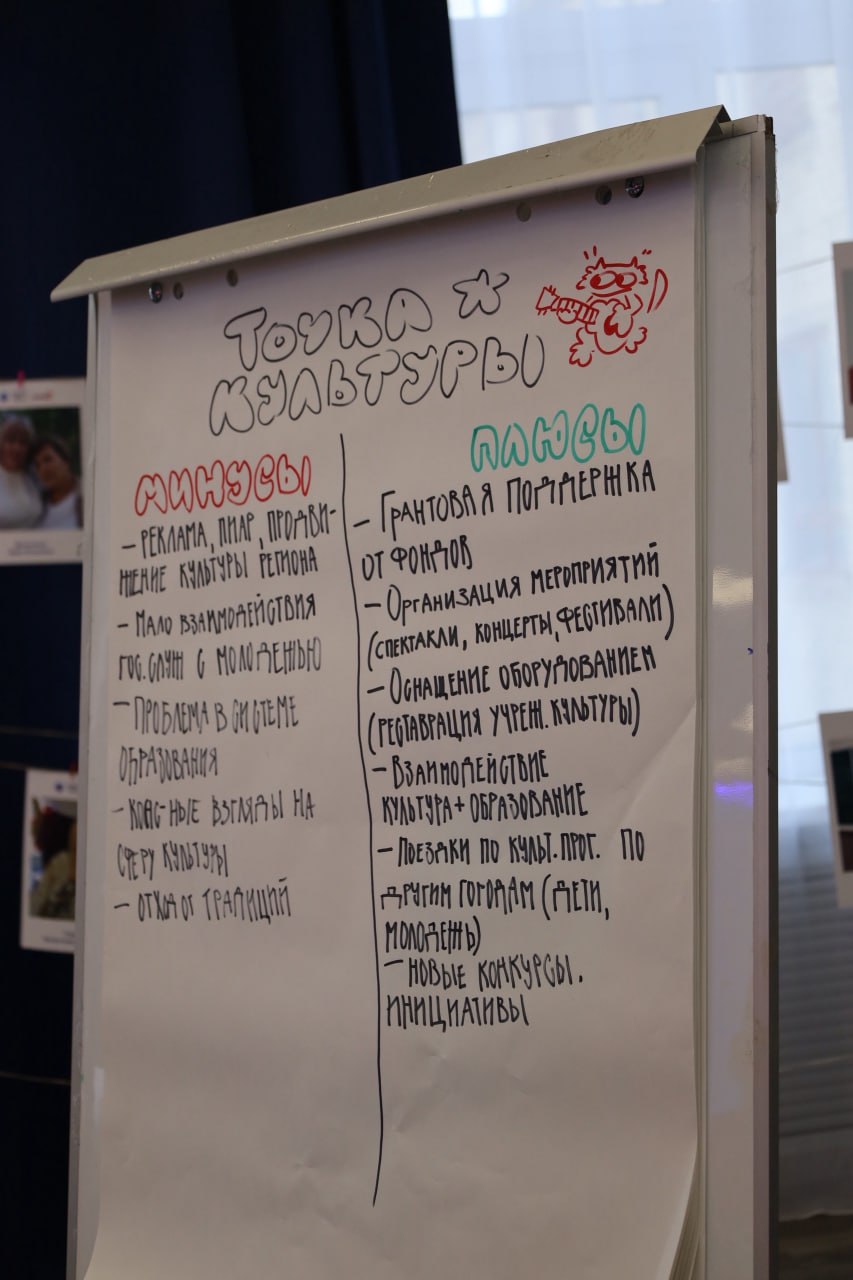 Точка
культуры
минусы
– Реклама, пиар, продви-
жение культуры региона
– Мало взаимодействия
гос. служ с молодежью
– Проблема в системе
образования
взгляды на
сферу культуры
– отход от традиций
плюсы
– Грантовая поддержка
от фондов
– Организация мероприятий
(спектакли, концерты, фестивали)
– Оснащение оборудованием
(реставрация учреж. культуры)
– Взаимодействие
культура + образование
– Поездки по культ. прог. по
другим городам (дети,
молодежь)
– новые конкурсы.
инициативы